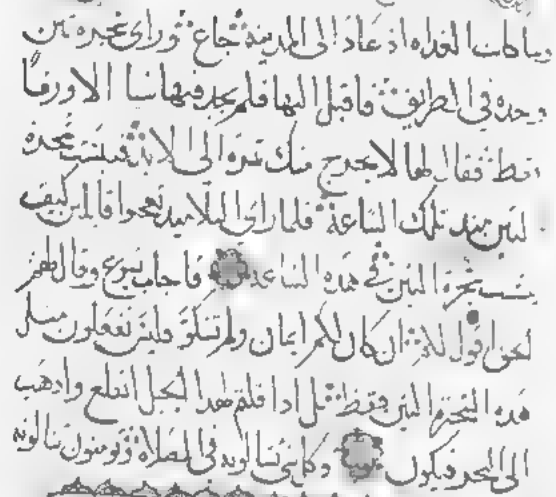 وبما كانت الغداه اذ عاد الى المدينة جاع وراى شجرة تين
وحده في الطريق فاقبل اليها فلم يجد فيها شيا الا ورقا
فقط فقال لها لا يخرج منك ثمره الى الابد فيبست شجرة
التين منذ تلك الساعة فلما راى التلاميذ تعجبوا قايلين كيف
يبست شجرة التين في هذه الساعه فاجاب يسوع وقال لهم
الحق اقول لكم ان كان لكم ايمان ولم تشكوا فليس تفعلون مثل
هذه الشجرة التين فقط بل اذا قلتم لهذا الجبل انقلع واذهب
الى البحر فيكون وكلشي تسالونه في الصلاة وتومنون تنالونه